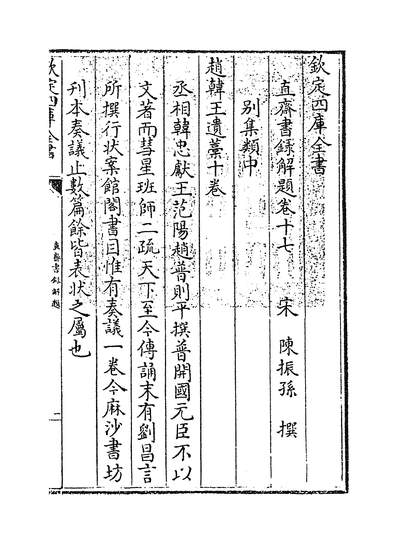 欽定四庫全書
直齋書錄解題卷十七　宋　陳振孫　撰
别集類中
趙韓王遺藁十卷
丞相韓忠獻王范陽趙普則平撰普開國元臣不以
文著而彗星班師二疏天下至今傳誦末有劉昌言
所撰行狀案館閣書目惟有奏議一卷今麻沙書坊
刋本奏議止數篇餘皆表狀之屬也
欽定四庫全書
直齋書錄解題
一